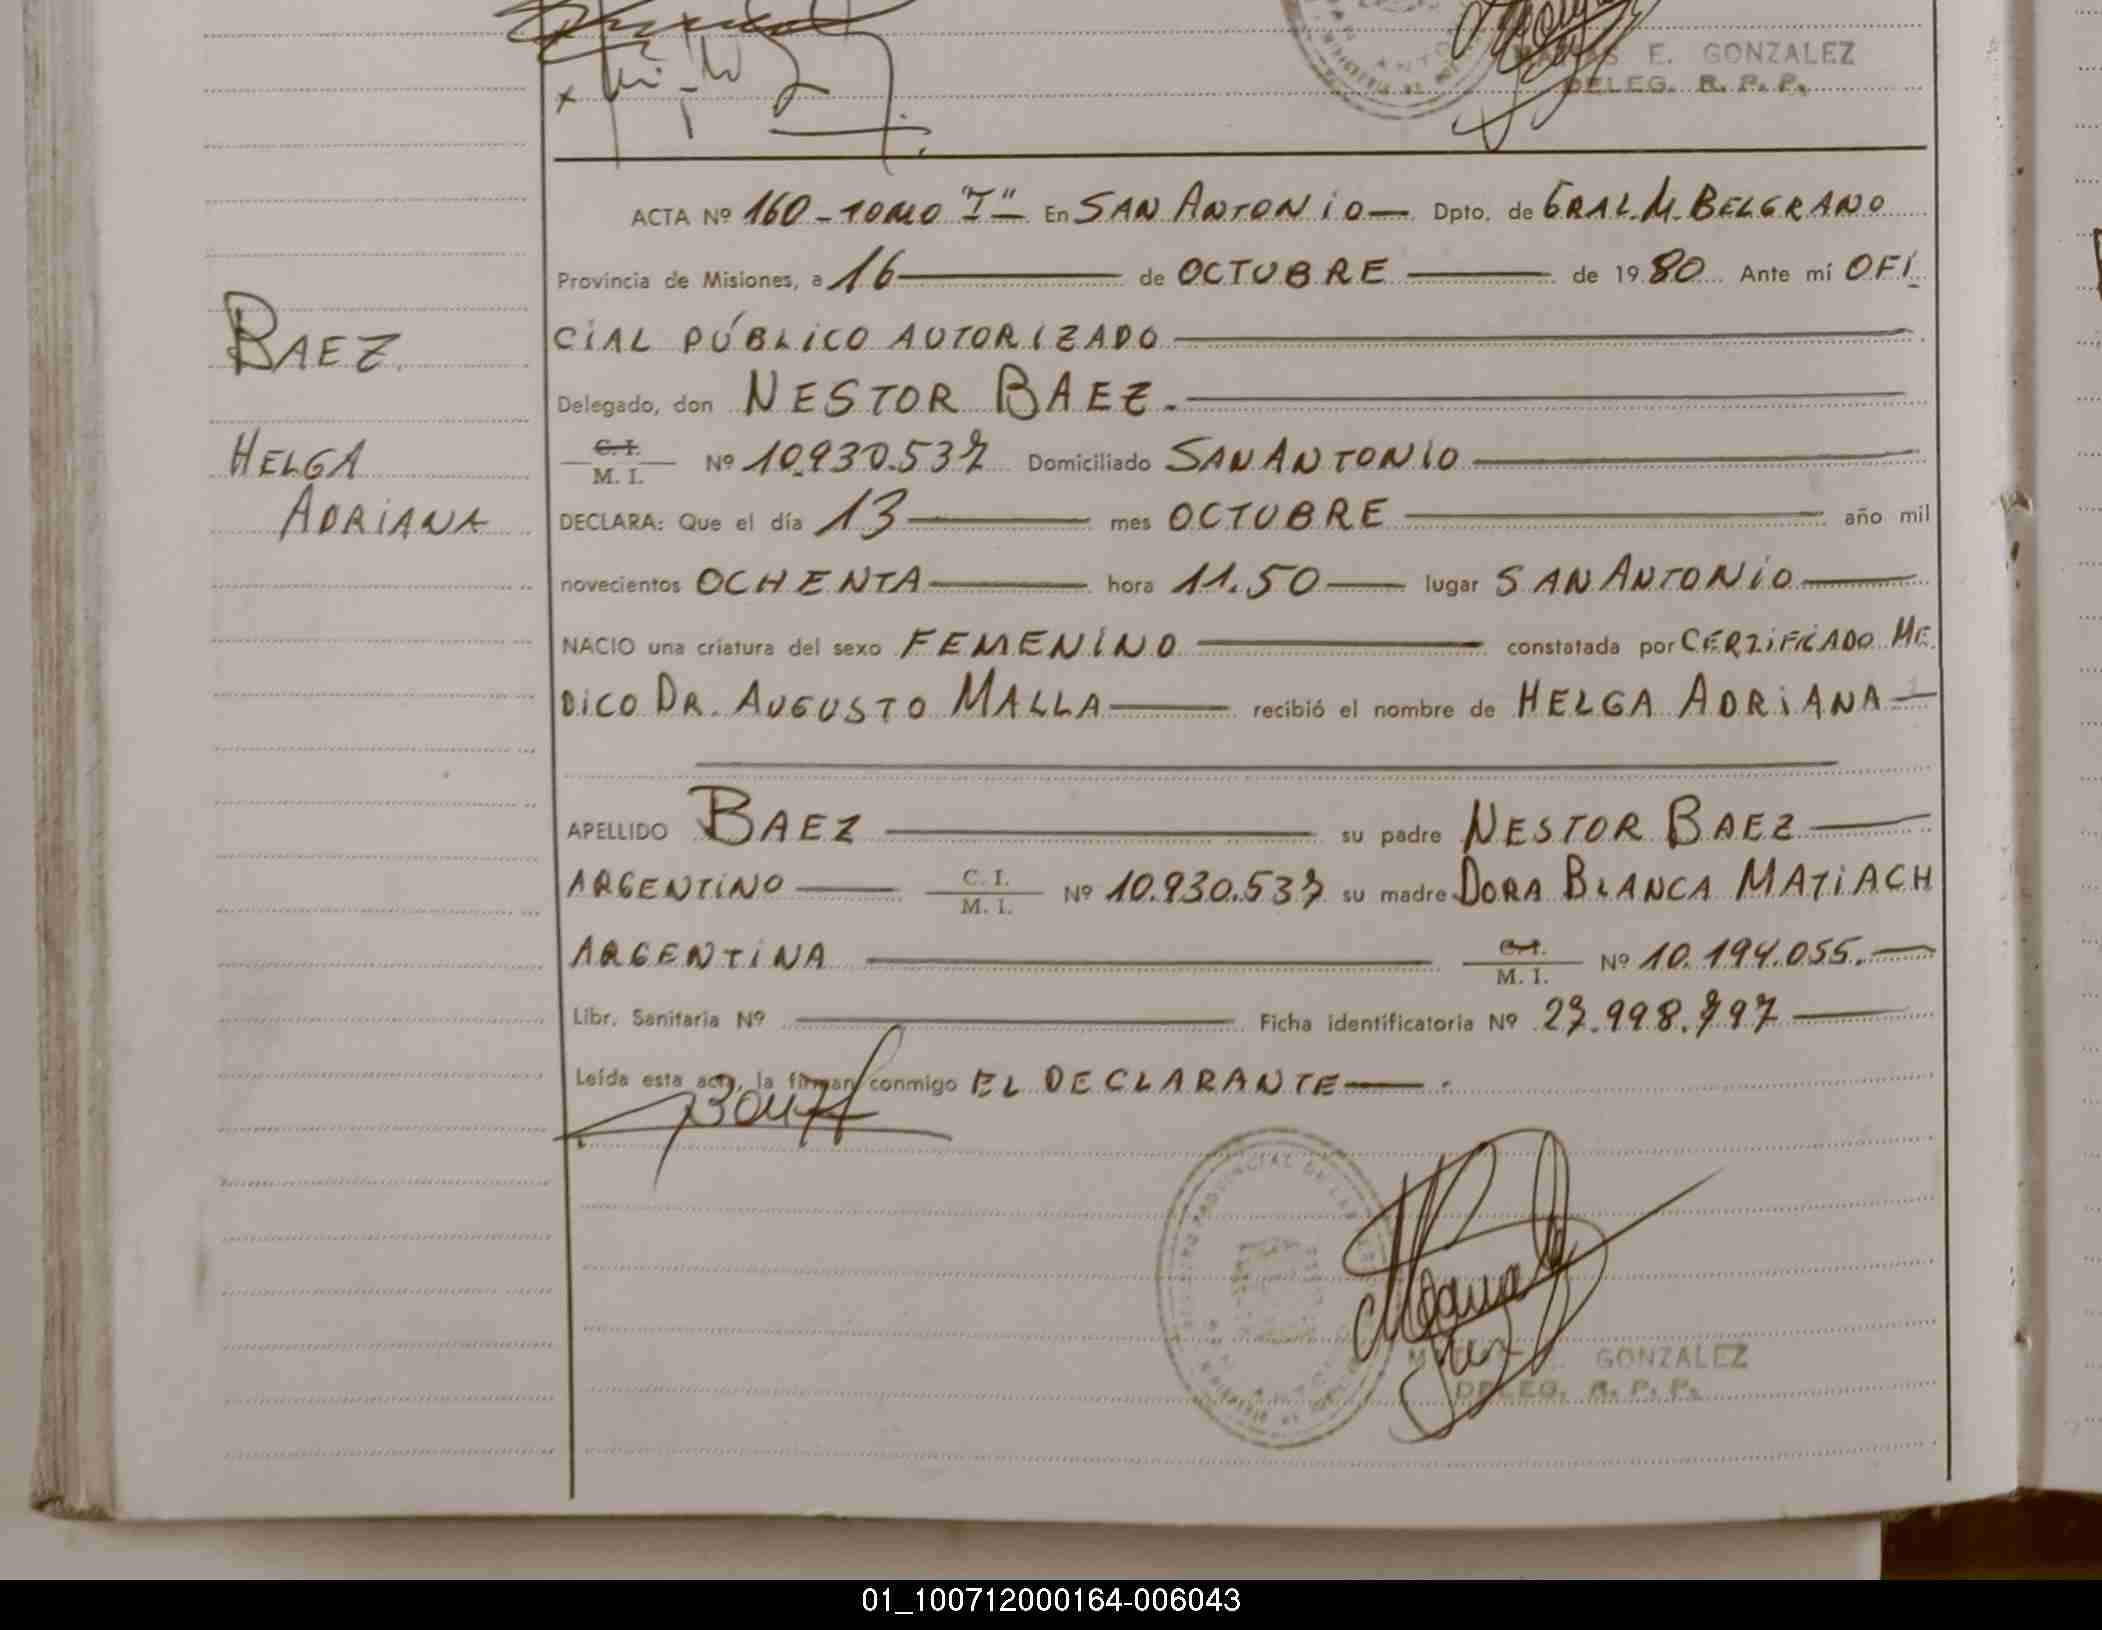 E. GONZALEZ
DELEG. R. P. P.
ACTA Nº 160 - TOMO "I" — En SAN ANTONIO — Dpto. de GRAL. M. BELGRANO
Provincia de Misiones, a 16 — de OCTUBRE — de 1980 Ante mí OFI
CIAL PÚBLICO AUTORIZADO —
BAEZ
Delegado, don NESTOR BAEZ. —
HELGA
C. I.
M. I. Nº 10.930.537 Domiciliado SAN ANTONIO —
ADRIANA
DECLARA: Que el día 13 — mes OCTUBRE — año mil
novecientos OCHENTA — hora 11.50 — lugar SAN ANTONIO —
NACIO una criatura del sexo FEMENINO — constatada por CERTIFICADO ME
DICO DR. AUGUSTO MALLA — recibió el nombre de HELGA ADRIANA —
APELLIDO BAEZ — su padre NESTOR BAEZ —
ARGENTINO — C. I. M. I. Nº 10.930.537 su madre DORA BLANCA MATIACH
ARGENTINA — C. I. M. I. Nº 10.194.055. —
Libr. Sanitaria Nº — Ficha identificatoria Nº 27.998.797 —
Leída esta acta, la firman conmigo EL DECLARANTE — .
GONZALEZ
DELEG. R. P. P.
01_100712000164-006043